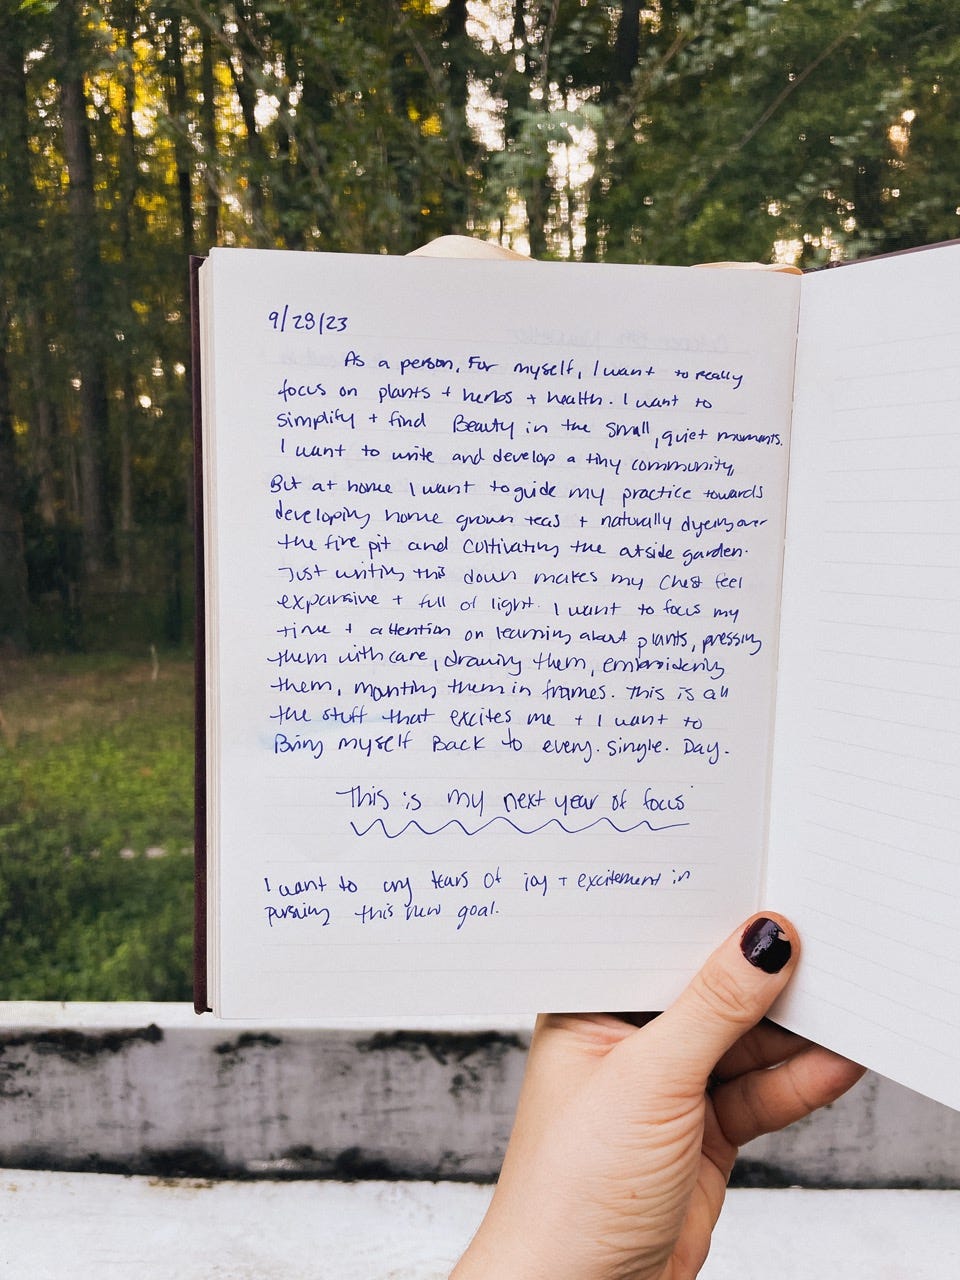 9/28/23
As a person. For myself, I want to really
focus on plants + herbs + health. I want to
simplify + find Beauty in the small, quiet moments.
I want to write and develop a tiny community,
But at home I want to guide my practice towards
developing home grown teas + naturally dyeing over
the fire pit and cultivating the outside garden.
Just writing this down makes my chest feel
expansive + full of light. I want to focus my
time + attention on learning about plants, pressing
them with care, drawing them, embroidering
them, mounting them in frames. This is all
the stuff that excites me + I want to
Bring myself Back to every. single. Day.
This is my next year of focus
I want to cry tears of joy + excitement in
pursuing this new goal.